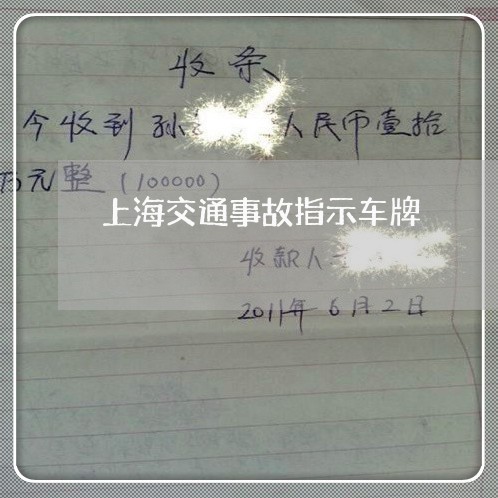 收条
今收到孙 人民币壹拾
万元整（100000）
上海交通事故指示车牌
收款人
2011年6月2日